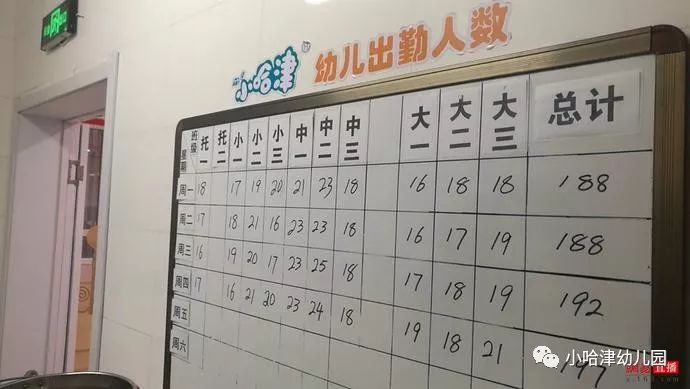 小哈津 幼儿出勤人数
班级 星期 托一 托二 小一 小二 小三 中一 中二 中三 大一 大二 大三 总计
周一 18 17 19 20 21 23 18 16 18 18 188
周二 17 18 21 16 23 23 18 16 17 19 188
周三 16 19 20 17 23 25 18 17 18 19 192
周四 17 16 21 20 23 24 18 19 18 21 197
周五
周六
小哈津幼儿园
网易直播